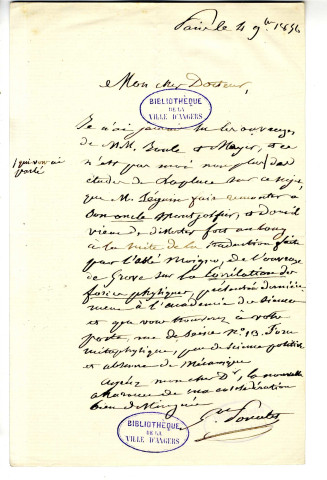 Paris le 4 9bre 1856
Mon cher Docteur,
BIBLIOTHÈQUE
DE LA
VILLE D'ANGERS
Je n'ai jamais lu les ouvrages
de MM. Joule & Mayer, & ce
n'est pas moi non plus / des
/ qui vous ai
parlé
études de Laplace sur ce sujet
que M. Séguin fait remonter à
son oncle Montgolfier, & dont il
vient de disserter fort au long
à la suite de la traduction faite
par l'abbé Moigno, de l'ouvrage
de Grove sur la Corrélation des
forces physiques, présenté dernière
ment à l'académie des sciences
et que vous trouverez à votre
porte, rue de Seine N° 13.
métaphysique, peu de science positive
et absence de Mécanique
Agréez mon cher Dr, la nouvelle
assurance de ma considération
bien distinguée
BIBLIOTHÈQUE
DE LA
VILLE D'ANGERS